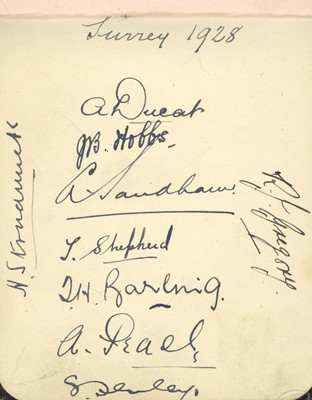 Surrey 1928
A Ducat
JB. Hobbs.
A Sandham.
T. Shepherd
T.H. Barling.
A. Peach
R.J. Gregory.